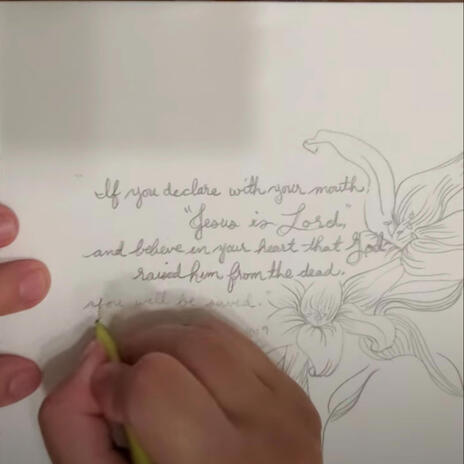 "If you declare with your mouth,
"Jesus is Lord,"
and believe in your heart that God
raised him from the dead.
you will be saved."